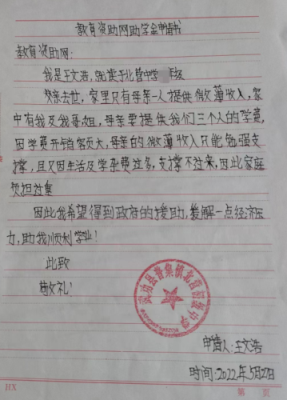 教育资助网助学金申请书
教育资助网:
我是王文浩,就读于北营中学 年级
父亲去世,家里只有母亲一人提供微薄收入,家
中有我及我哥姐,母亲要提供我们三个人的学费,
因学费开销室页大,母亲的微薄收入只能勉强支
撑,且又因生活及学杂费过多,支撑不过来,因此家庭
负担过重
因此我希望得到政府的援助,缓解一点经济压
力,助我顺利学业!
此致
敬礼!
申请人:王文浩
时间:2022年5月2日